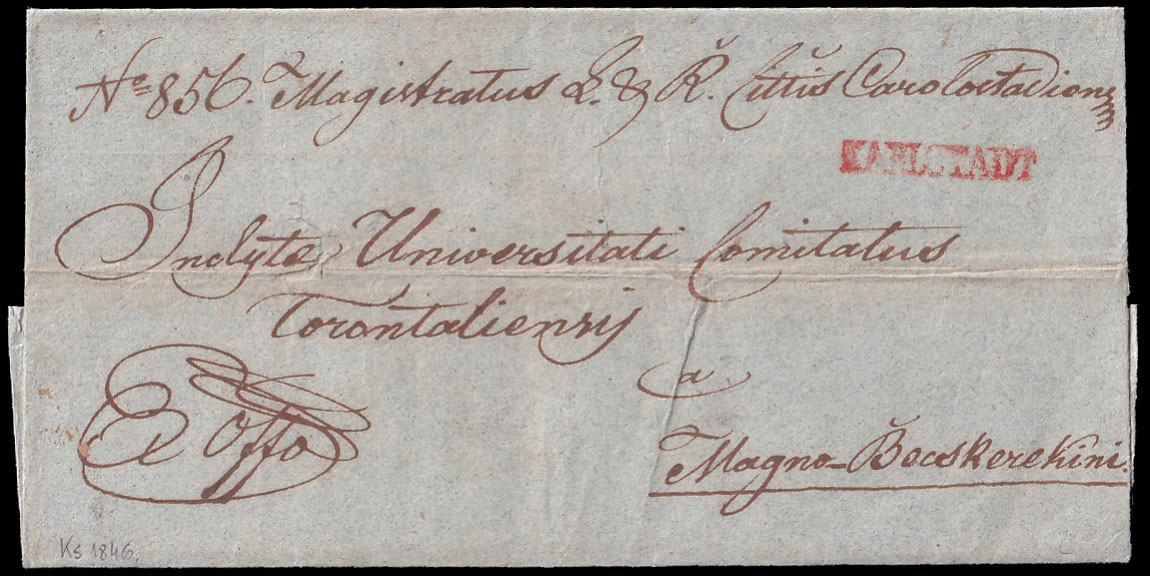 No 856. Magistratus L. & R. Cittis Carolostadien
KARLSTADT
Inclytæ Universitati Comitatus
Torontaliensis
a
Ex Offo
Magno-Becskerekini.
Ks 1846.